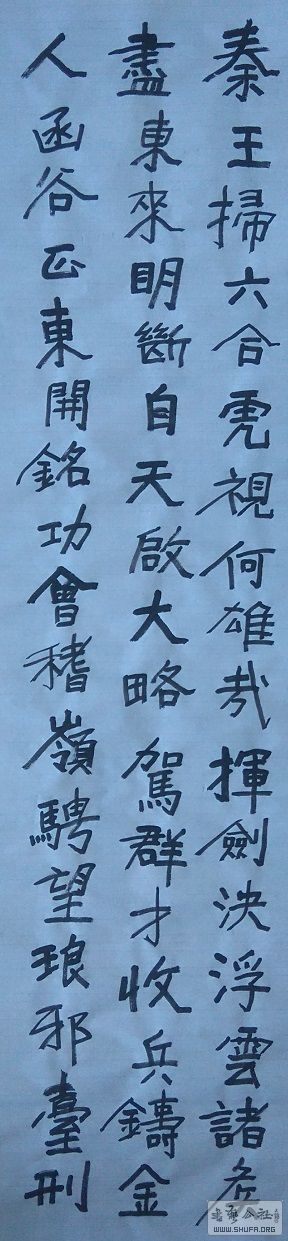 秦王掃六合虎視何雄哉揮劍決浮雲諸侯
盡東來明斷自天啟大略駕群才收兵鑄金
人函谷正東開銘功會稽嶺騁望琅邪臺刑
WWW.SHUFA.ORG